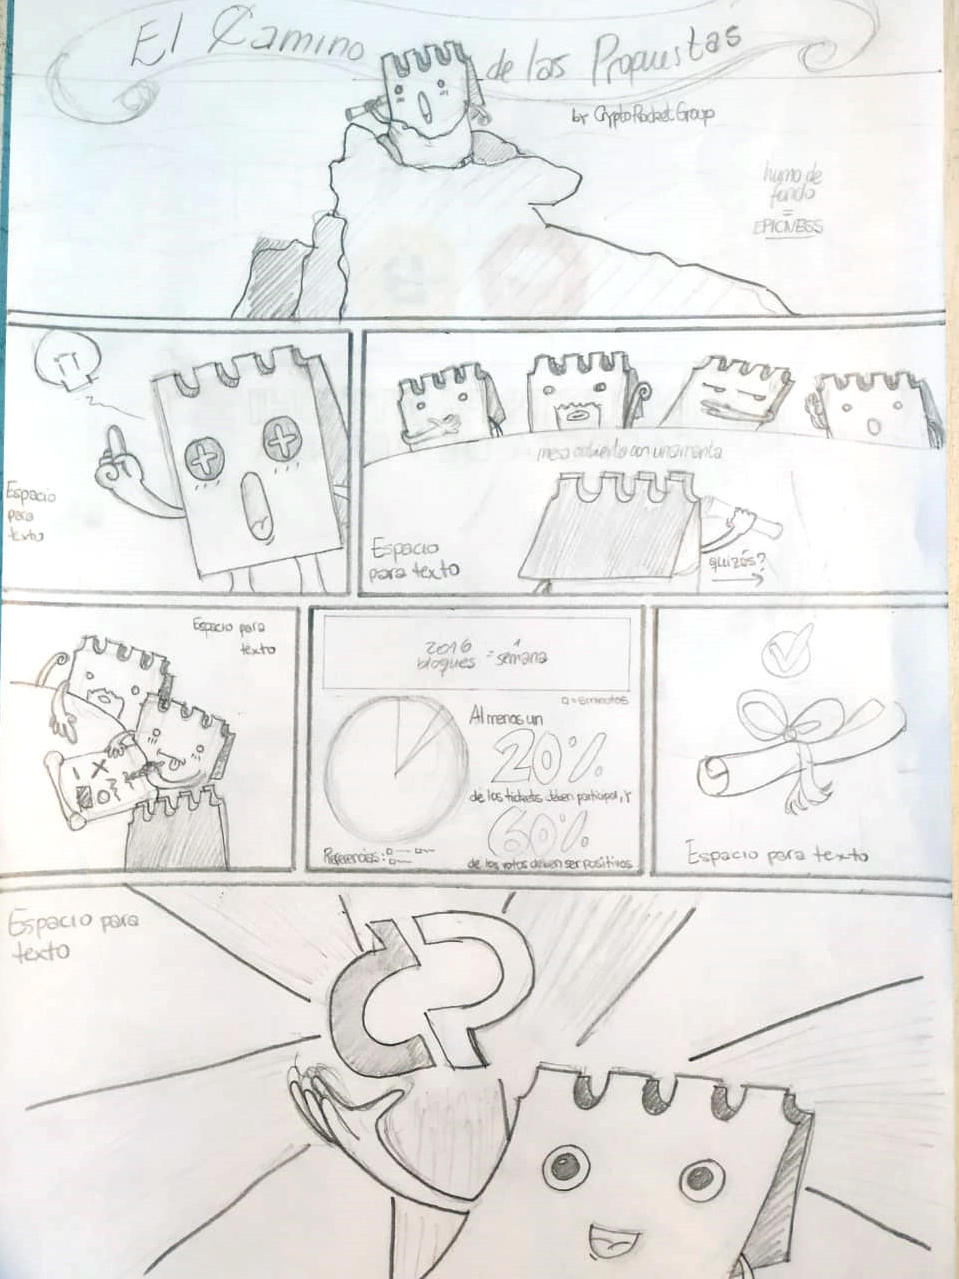 El Camino de las Propuestas
by CryptoRocket Group
humo de
fondo
=
EPICNESS
Espacio
para
texto
mesa cubierta con una manta
Espacio
para texto
quizás?
Espacio para
texto
2016
bloques = 1 semana
= 5 minutos
Al menos un
20%
de los tickets deben participar, y
60%
de los votos deben ser positivos
Referencias:
Espacio para texto
Espacio para
texto